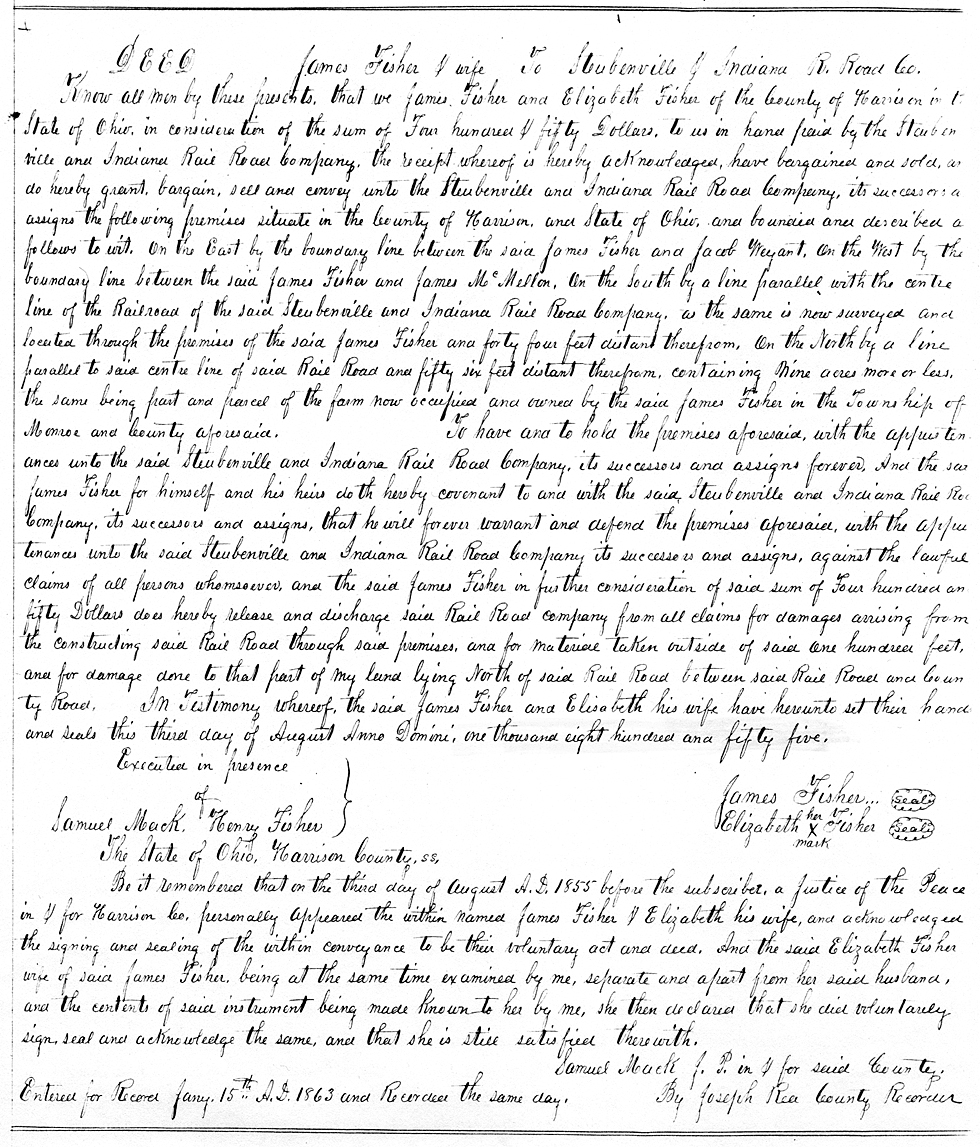 DEED James Fisher & wife To Steubenville & Indiana R. Road Co.
Know all men by these presents, that we James Fisher and Elizabeth Fisher of the County of Harrison in t
State of Ohio, in consideration of the sum of Four hundred & fifty Dollars, to us in hand paid by the Steuben
ville and Indiana Rail Road Company, the receipt whereof is hereby acknowledged, have bargained and sold, an
do hereby grant, bargain, sell and convey unto the Steubenville and Indiana Rail Road Company, its successors a
assigns the following premises situate in the County of Harrison, and State of Ohio, and bounded and described a
follows to wit. On the East by the boundary line between the said James Fisher and Jacob Weyant, On the West by the
boundary line between the said James Fisher and James McMellon, On the South by a line parallel with the centre
line of the Railroad of the said Steubenville and Indiana Rail Road Company, as the same is now surveyed and
located through the premises of the said James Fisher and forty four feet distant therefrom, On the North by a line
parallel to said centre line of said Rail Road and fifty six feet distant therefrom, containing Nine acres more or less,
the same being part and parcel of the farm now occupied and owned by the said James Fisher in the Township of
Monroe and County aforesaid. To have and to hold the premises aforesaid, with the appurten
ances unto the said Steubenville and Indiana Rail Road Company, its successors and assigns forever, And the sai
James Fisher for himself and his heirs doth hereby covenant to and with the said, Steubenville and Indiana Rail Roa
Company, its successors and assigns, that he will forever warrant and defend the premises aforesaid, with the appu
tenances unto the said Steubenville and Indiana Rail Road Company its successors and assigns, against the lawful
claims of all persons whomsoever, and the said James Fisher in further consideration of said sum of Four hundred an
fifty Dollars does hereby release and discharge said Rail Road company from all claims for damages arrising from
the constructing said Rail Road through said premises, and for material taken outside of said one hundred feet,
and for damage done to that part of my land lying North of said Rail Road between said Rail Road and Coun
ty Road. In Testimony whereof, the said James Fisher and Elisabeth his wife have hereunto set their hand
and seals this third day of August Anno Domini, one thousand eight hundred and fifty five.
Executed in presence
of
James Fisher... Seal
Samuel Mack, Henry Fisher
Elizabeth her X mark Fisher Seal
The State of Ohio, Harrison County, ss,
Be it remembered that on the third day of August A.D. 1855 before the subscriber, a Justice of the Peace
in & for Harrison Co. personally appeared the within named James Fisher & Elizabeth his wife, and acknowledged
the signing and sealing of the within conveyance to be their voluntary act and deed. And the said Elizabeth Fisher
wife of said James Fisher, being at the same time examined by me, separate and apart from her said husband,
and the contents of said instrument being made known to her by me, she then declared that she did voluntarily
sign, seal and acknowledge the same, and that she is still satisfied therewith.
Samuel Mack J. P. in & for said County.
Entered for Record Jany. 15th A.D. 1863 and Recorded the same day. By Joseph Rea County Recorder